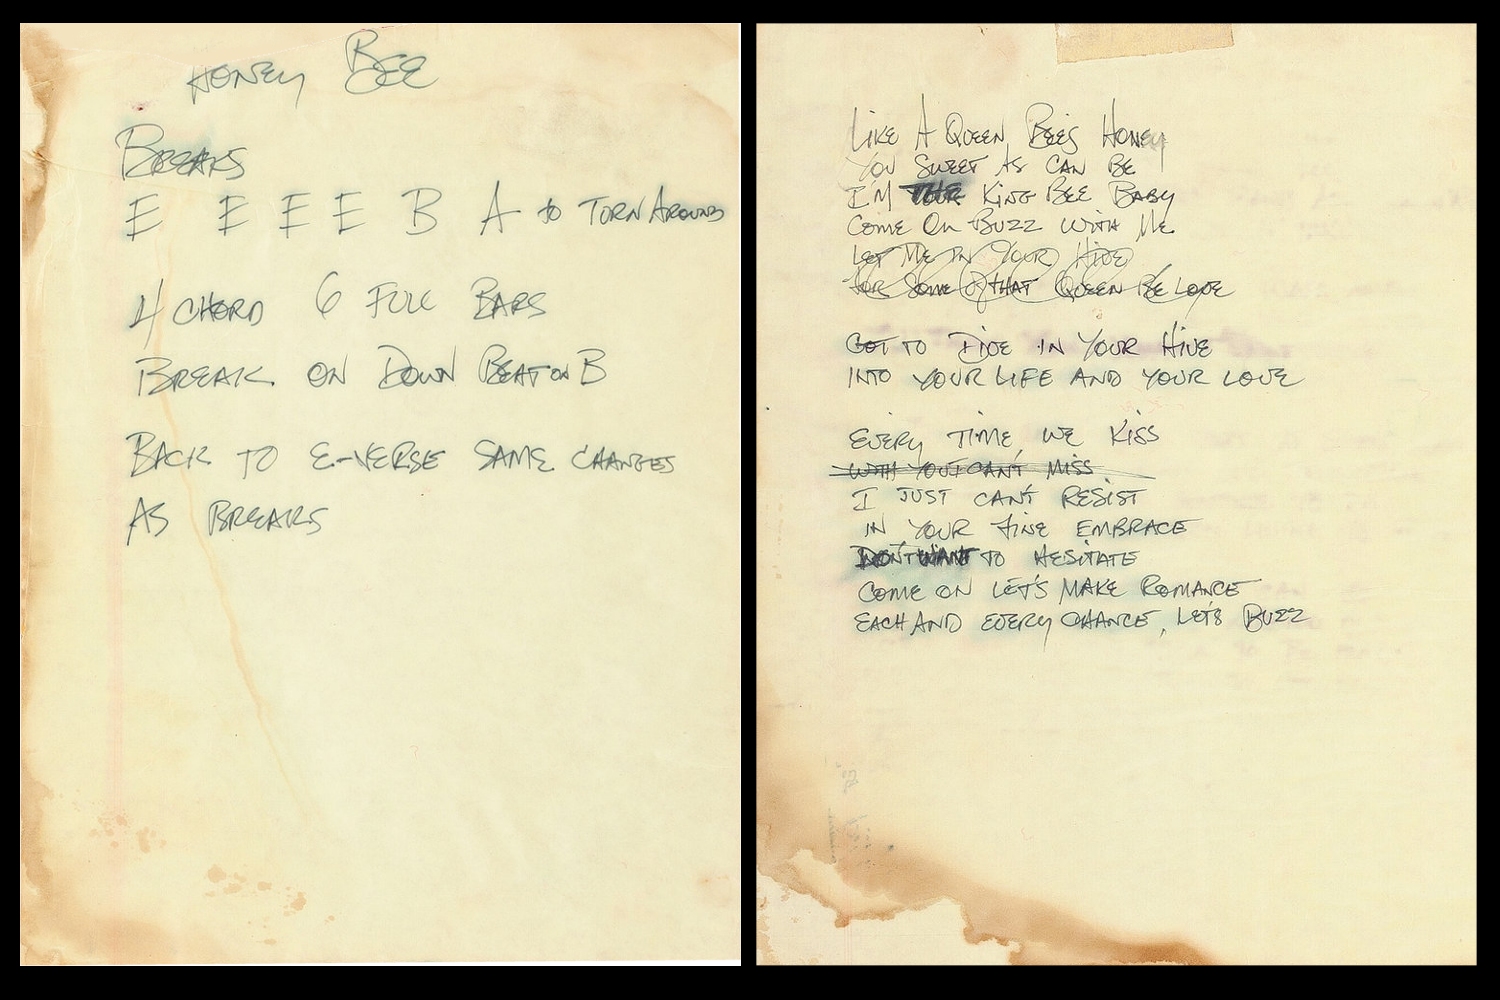 HONEY BEE
BREAKS
E E E E B A to TURN AROUND
4 CHORD 6 FULL BARS
BREAK ON DOWN BEAT ON B
BACK TO E-VERSE SAME CHANGES
AS BREAKS
LIKE A QUEEN BEE'S HONEY
YOU SWEET AS CAN BE
I'M KING BEE BABY
COME ON BUZZ WITH ME
LET ME IN YOUR HIVE
FOR SOME OF THAT QUEEN BE LOVE
GOT TO DIVE IN YOUR HIVE
INTO YOUR LIFE AND YOUR LOVE
EVERY TIME WE KISS
WITH YOU I CAN'T MISS
I JUST CAN'T RESIST
IN YOUR FINE EMBRACE
DON'T WANT TO HESITATE
COME ON LET'S MAKE ROMANCE
EACH AND EVERY CHANCE, LET'S BUZZ